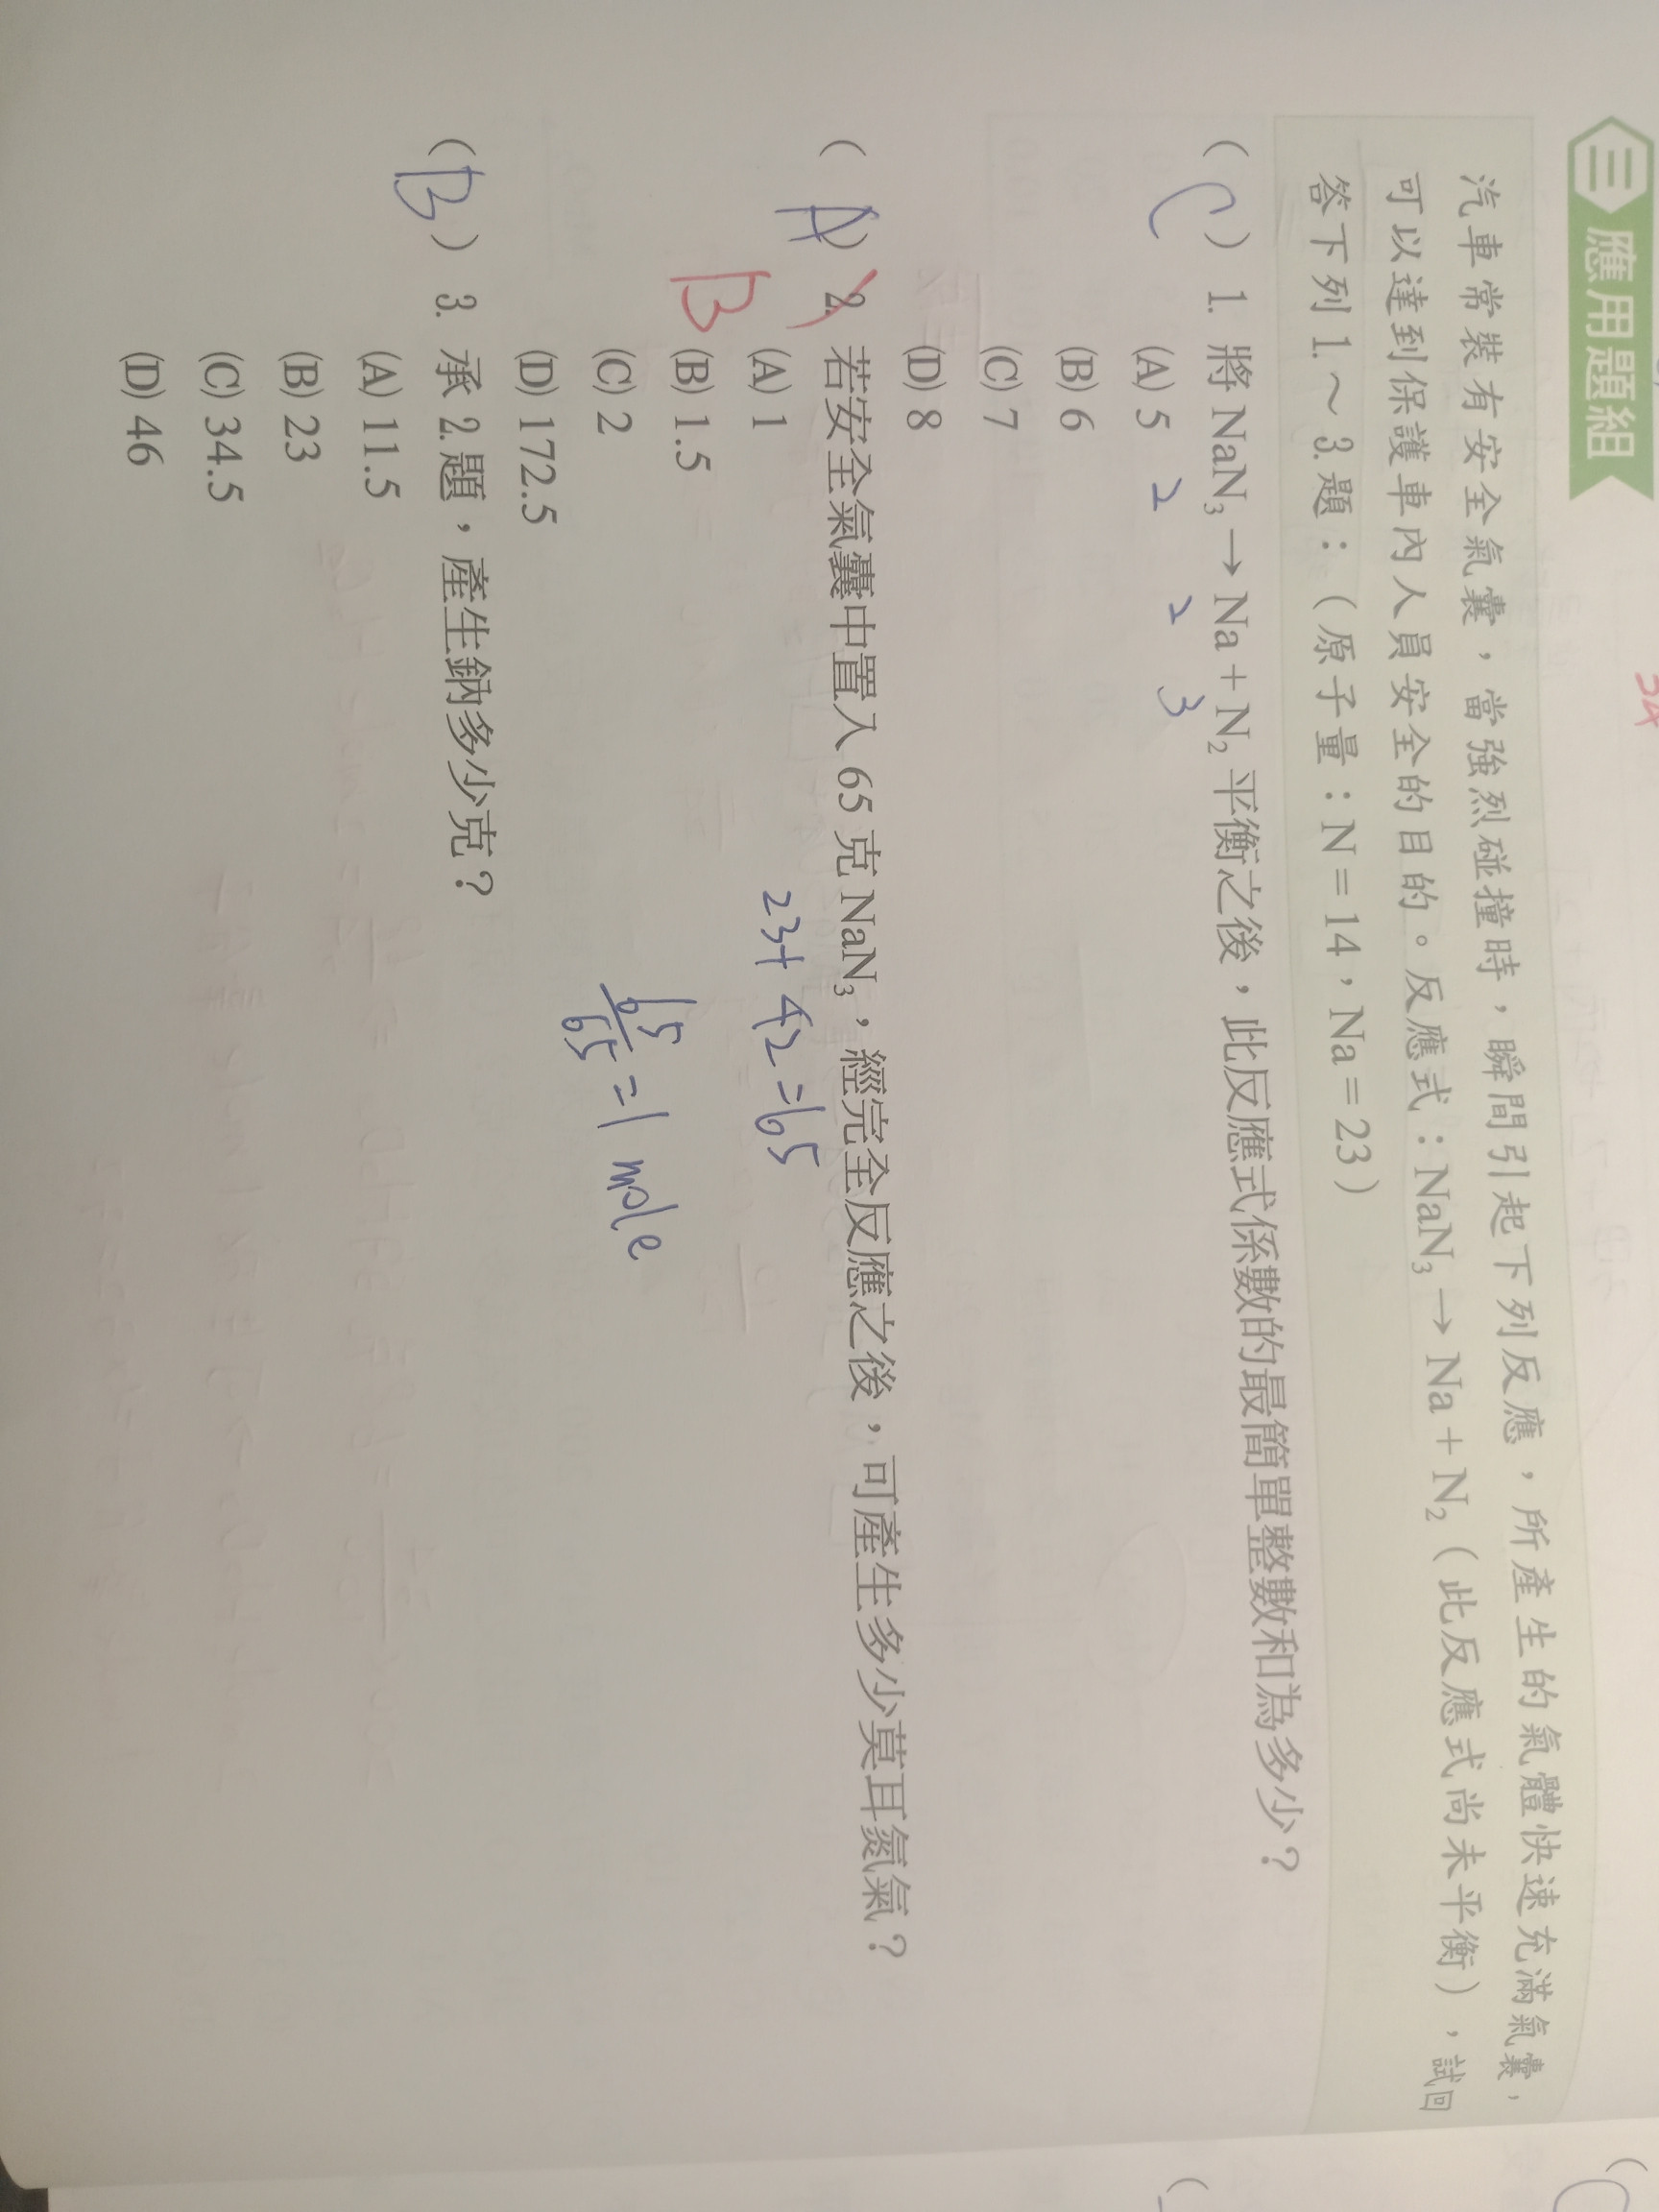 三 應用題組
汽車常裝有安全氣囊，當強烈碰撞時，瞬間引起下列反應，所產生的氣體快速充滿氣囊，
可以達到保護車內人員安全的目的。反應式：NaN₃→Na＋N₂（此反應式尚未平衡），試回
答下列1.～3.題：（原子量：N＝14，Na＝23）
( C ) 1. 將 NaN₃→Na＋N₂ 平衡之後，此反應式係數的最簡單整數和為多少？
2 2 3
(A) 5
(B) 6
(C) 7
(D) 8
( A ) 2. 若安全氣囊中置入 65 克 NaN₃，經完全反應之後，可產生多少莫耳氮氣？
B
23+42=65
(A) 1
(B) 1.5
65/65=1 mole
(C) 2
(D) 172.5
( B ) 3. 承 2.題，產生鈉多少克？
(A) 11.5
(B) 23
(C) 34.5
(D) 46